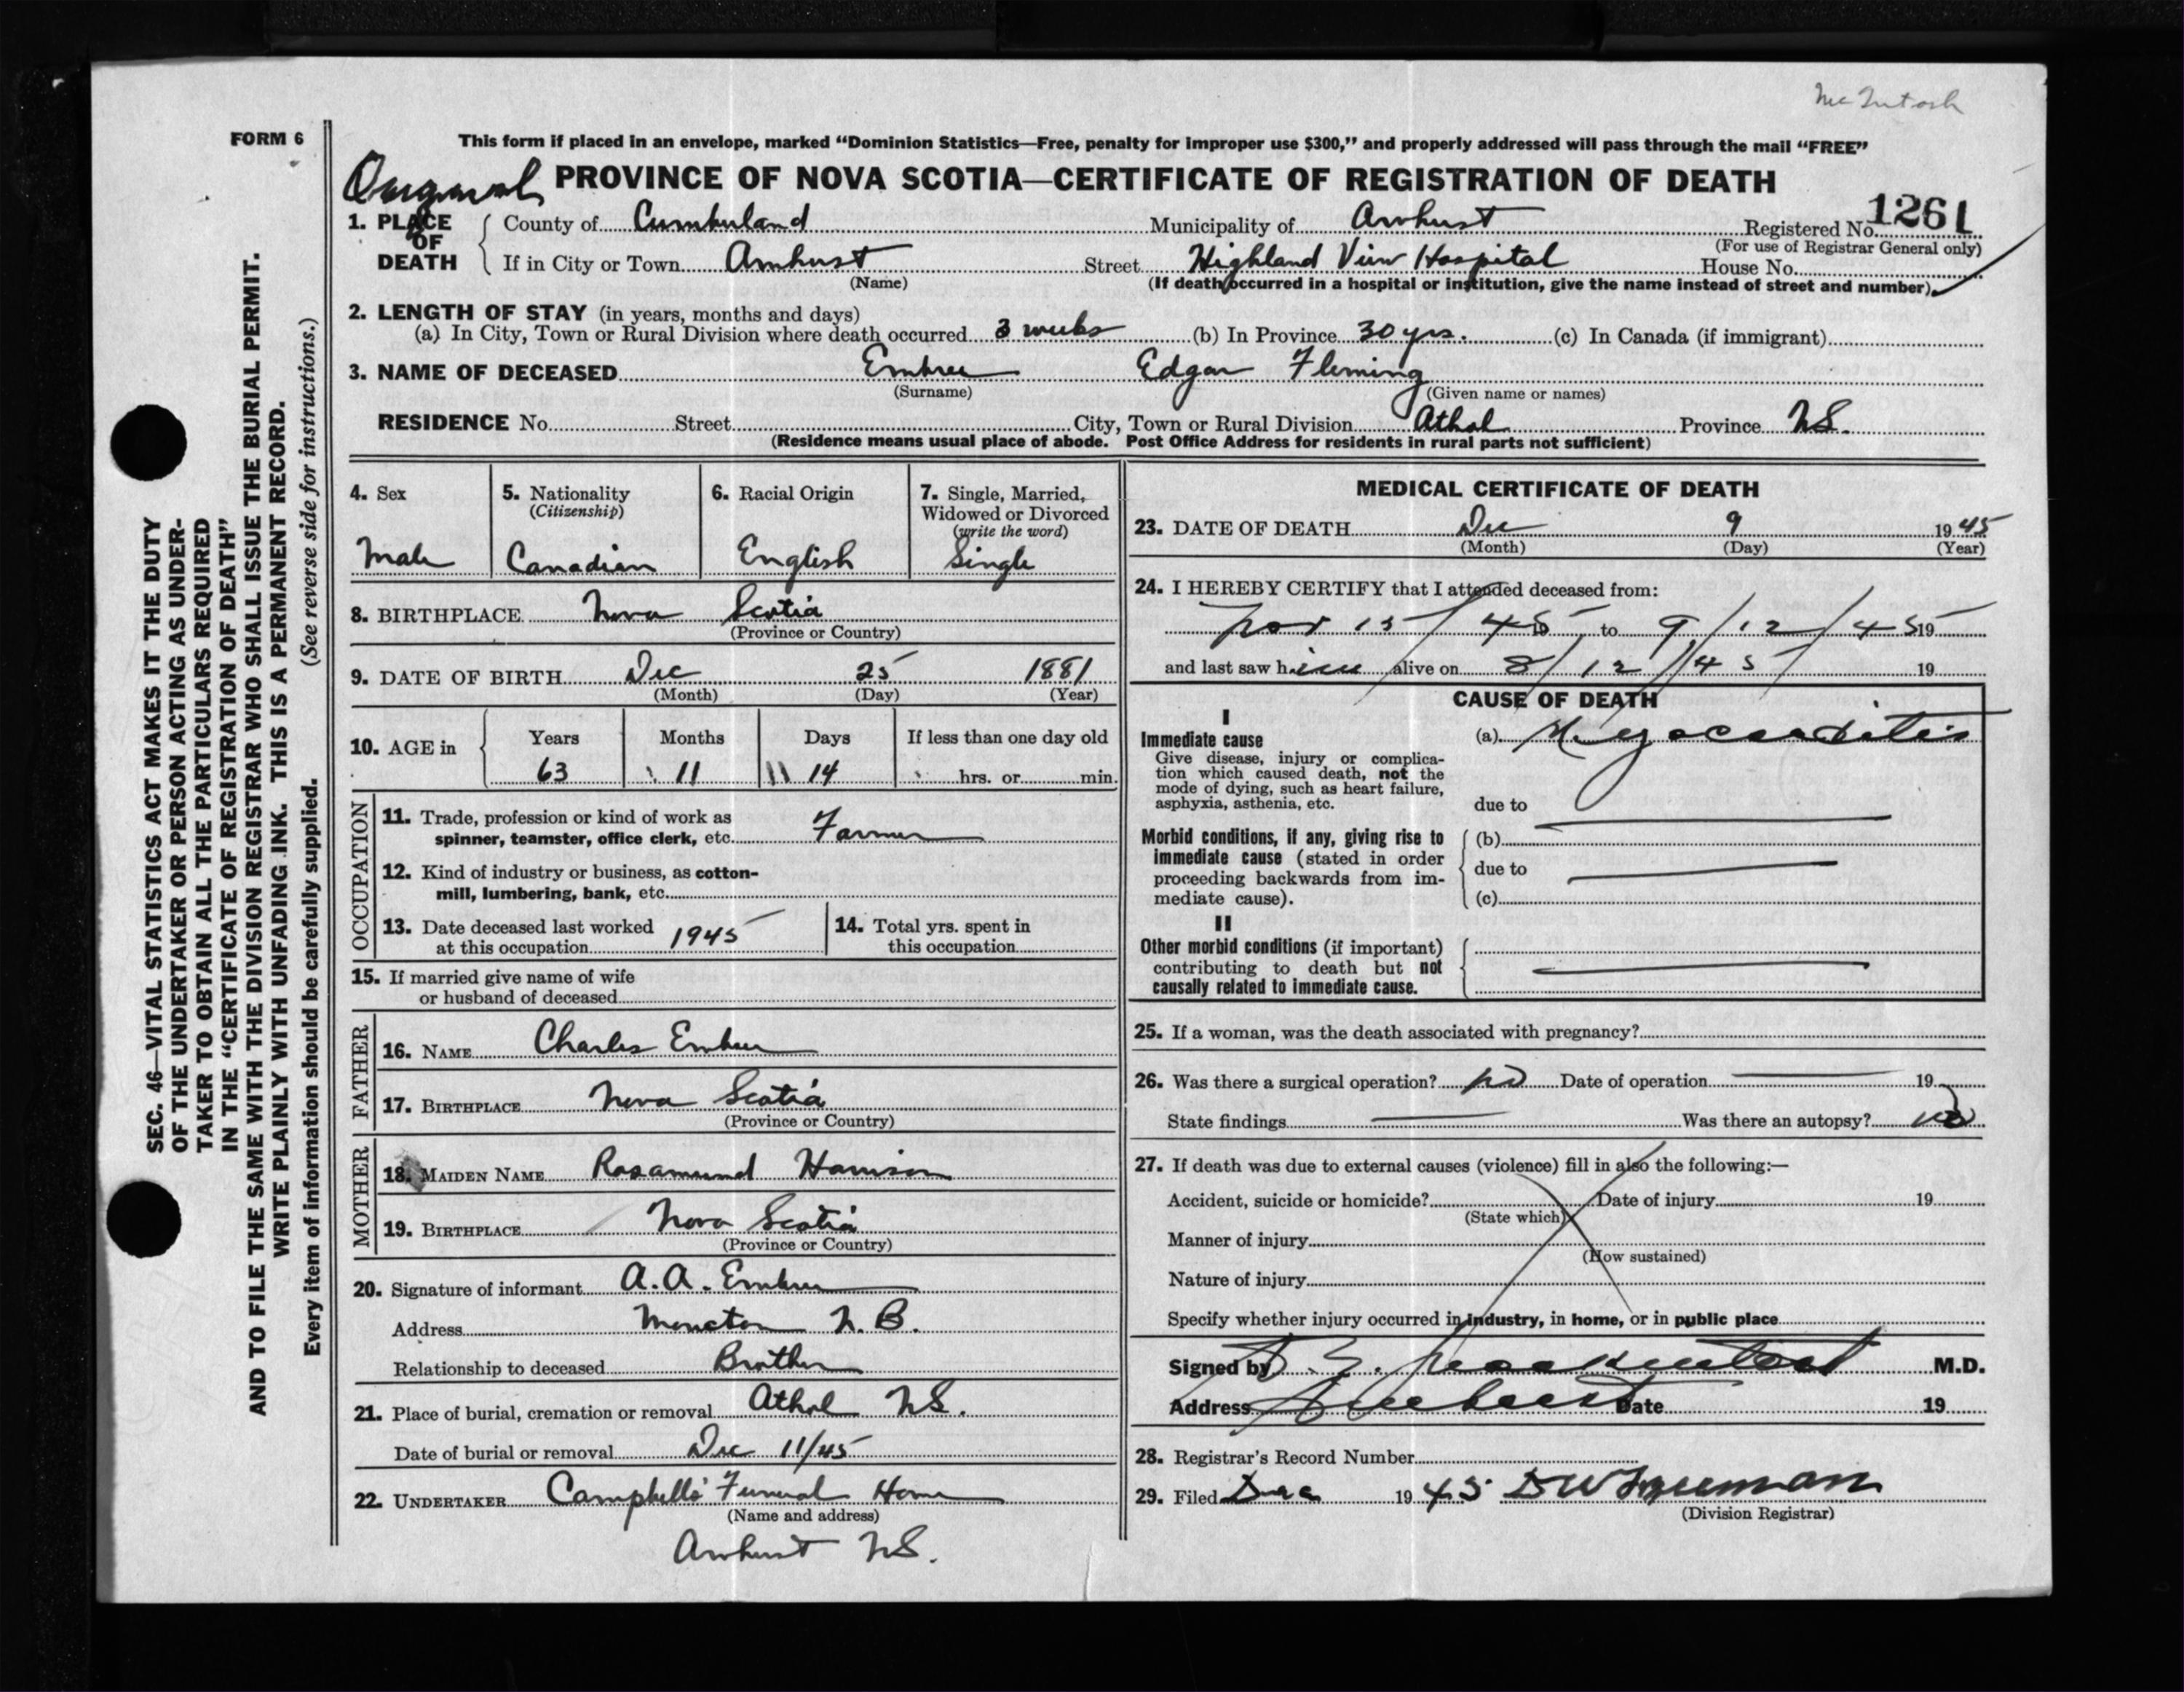 McIntosh
FORM 6
This form if placed in an envelope, marked “Dominion Statistics—Free, penalty for improper use $300,” and properly addressed will pass through the mail “FREE”
Original PROVINCE OF NOVA SCOTIA—CERTIFICATE OF REGISTRATION OF DEATH
1261
1. PLACE OF DEATH County of Cumberland Municipality of Amherst Registered No.
(For use of Registrar General only)
If in City or Town Amherst Street Highland View Hospital House No.
(Name) (If death occurred in a hospital or institution, give the name instead of street and number)
2. LENGTH OF STAY (in years, months and days)
(a) In City, Town or Rural Division where death occurred 3 weeks (b) In Province 30 yrs. (c) In Canada (if immigrant)
3. NAME OF DECEASED Embree Edgar Fleming
(Surname) (Given name or names)
RESIDENCE No. Street City, Town or Rural Division Athol Province N.S.
(Residence means usual place of abode. Post Office Address for residents in rural parts not sufficient)
4. Sex 5. Nationality 6. Racial Origin 7. Single, Married,
(Citizenship) Widowed or Divorced
(write the word)
Male Canadian English Single
8. BIRTHPLACE Nova Scotia
(Province or Country)
9. DATE OF BIRTH Dec 25 1881
(Month) (Day) (Year)
10. AGE in Years Months Days If less than one day old
63 11 14 hrs. or min.
OCCUPATION
11. Trade, profession or kind of work as
spinner, teamster, office clerk, etc. Farmer
12. Kind of industry or business, as cotton-
mill, lumbering, bank, etc.
13. Date deceased last worked
at this occupation 1945
14. Total yrs. spent in
this occupation
15. If married give name of wife
or husband of deceased
FATHER
16. NAME Charles Embree
17. BIRTHPLACE Nova Scotia
(Province or Country)
MOTHER
18. MAIDEN NAME Rosamund Harrison
19. BIRTHPLACE Nova Scotia
(Province or Country)
20. Signature of informant A. A. Embree
Address Moncton N. B.
Relationship to deceased Brother
21. Place of burial, cremation or removal Athol N.S.
Date of burial or removal Dec 11/45
22. UNDERTAKER Campbells' Funeral Home
(Name and address)
Amherst N.S.
MEDICAL CERTIFICATE OF DEATH
23. DATE OF DEATH Dec 9 1945
(Month) (Day) (Year)
24. I HEREBY CERTIFY that I attended deceased from:
Nov 15/45 19 , to 9/12/45 19
and last saw him alive on 8/12/45 19
CAUSE OF DEATH
I
Immediate cause
Give disease, injury or complica-
tion which caused death, not the
mode of dying, such as heart failure,
asphyxia, asthenia, etc.
(a) Myocarditis
due to
Morbid conditions, if any, giving rise to
immediate cause (stated in order
proceeding backwards from im-
mediate cause).
(b)
due to
(c)
II
Other morbid conditions (if important)
contributing to death but not
causally related to immediate cause.
25. If a woman, was the death associated with pregnancy?
26. Was there a surgical operation? no Date of operation 19
State findings Was there an autopsy? no
27. If death was due to external causes (violence) fill in also the following:—
Accident, suicide or homicide? Date of injury 19
(State which)
Manner of injury
(How sustained)
Nature of injury
Specify whether injury occurred in industry, in home, or in public place
Signed by M.D.
Address Amherst Date 19
28. Registrar's Record Number
29. Filed Dec 1945 D W Freeman
(Division Registrar)
SEC. 46—VITAL STATISTICS ACT MAKES IT THE DUTY
OF THE UNDERTAKER OR PERSON ACTING AS UNDER-
TAKER TO OBTAIN ALL THE PARTICULARS REQUIRED
IN THE “CERTIFICATE OF REGISTRATION OF DEATH”
AND TO FILE THE SAME WITH THE DIVISION REGISTRAR WHO SHALL ISSUE THE BURIAL PERMIT.
WRITE PLAINLY WITH UNFADING INK. THIS IS A PERMANENT RECORD.
Every item of information should be carefully supplied. (See reverse side for instructions.)